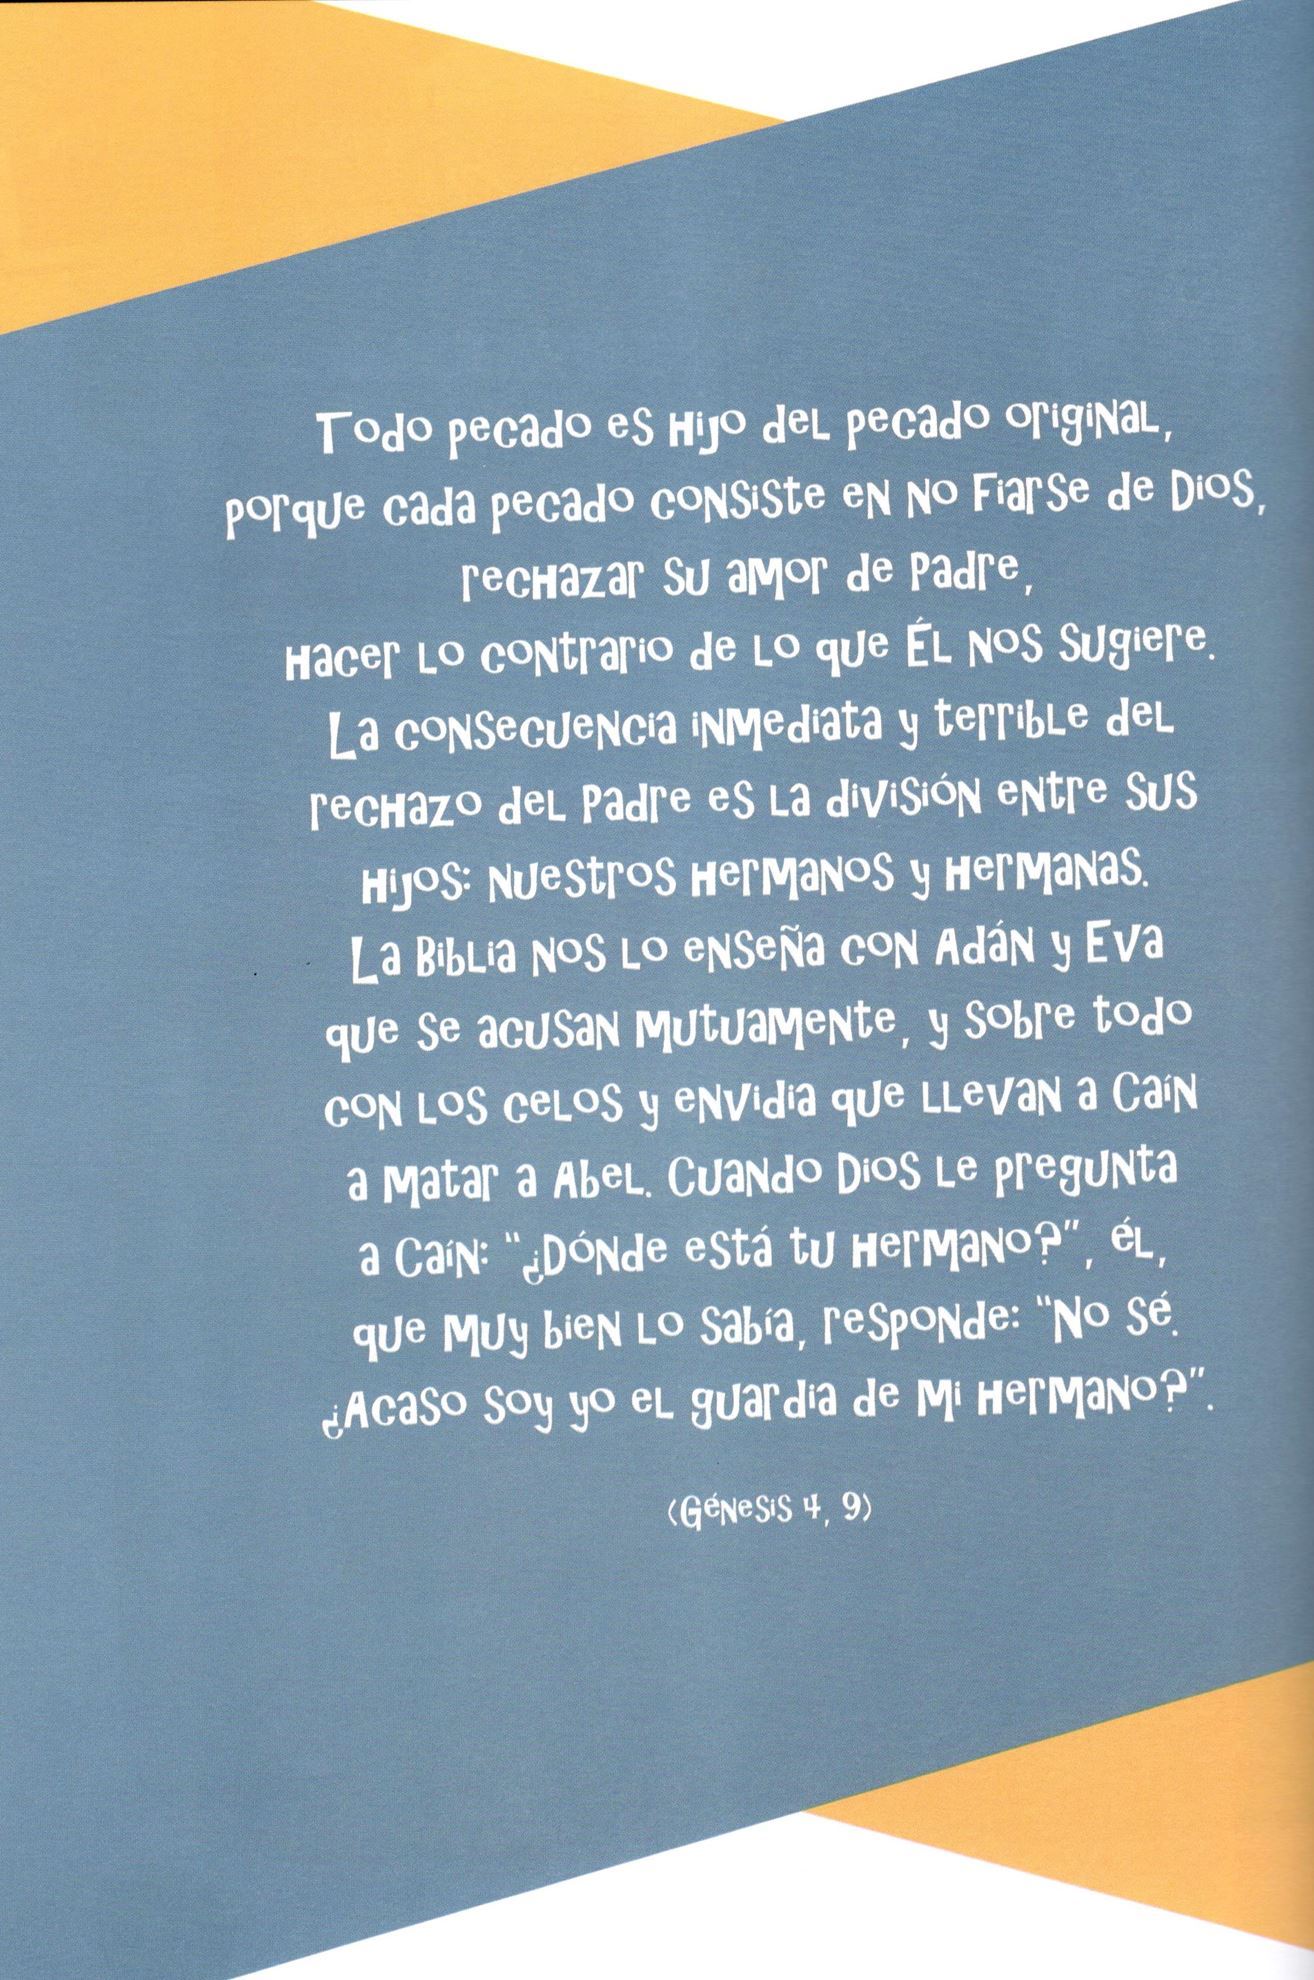 Todo pecado es hijo del pecado original,
porque cada pecado consiste en no fiarse de Dios,
rechazar su amor de Padre,
hacer lo contrario de lo que Él nos sugiere.
La consecuencia inmediata y terrible del
rechazo del Padre es la división entre sus
hijos: nuestros hermanos y hermanas.
La Biblia nos lo enseña con Adán y Eva
que se acusan mutuamente, y sobre todo
con los celos y envidia que llevan a Caín
a matar a Abel. Cuando Dios le pregunta
a Caín: "¿Dónde está tu hermano?", él,
que muy bien lo sabía, responde: "No sé.
¿Acaso soy yo el guardia de mi hermano?".
(Génesis 4, 9)